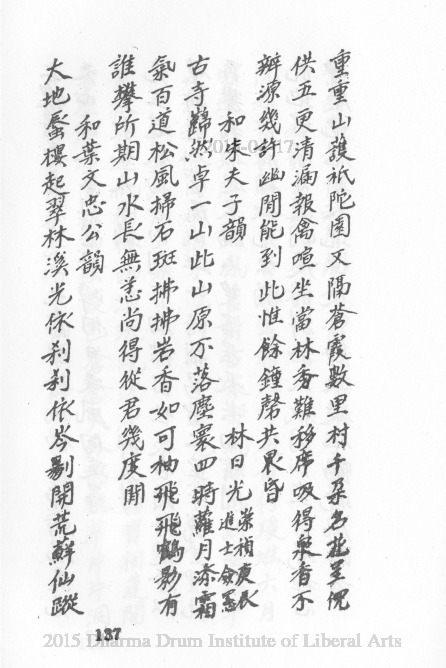 重重山護祇陀園又隔蒼霞數里村千朵名花呈
供五更清漏報禽喧坐當林香難移席吸得泉香不
辨源幾許幽閒能到此惟餘鐘磬共晨昏
和朱夫子韻
林日光崇禎庚辰進士僉憲
古寺巋然卓一山此山原不落塵寰四時蘿月添霜
氣百道松風掃石斑拂拂岩香如可柚飛飛鶴影有
誰攀所期山水長無恙尚得從君幾度閒
和葉文忠公韻
大地蜃樓起翠林溪光依剎剎依岑剔開荒蘚仙蹤
137
2015 Dharma Drum Institute of Liberal Arts